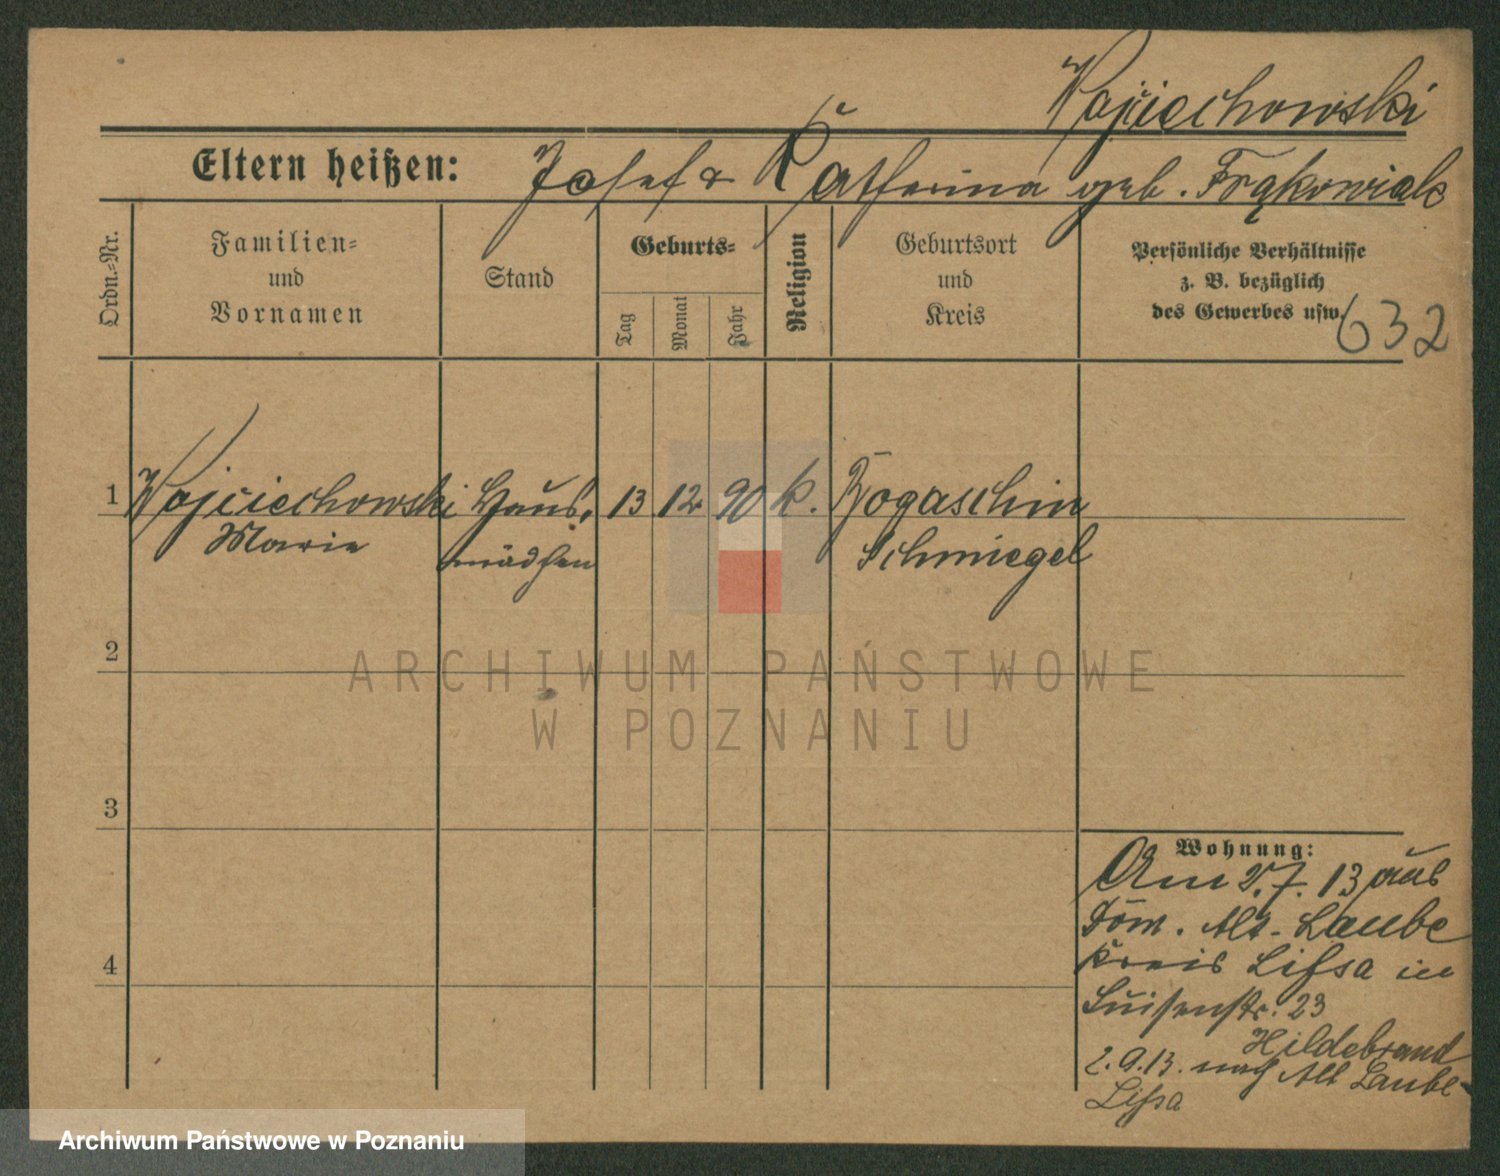 Wojciechowski
Eltern heißen: Josef & Katherina geb. Frąkowiak
Ordn.=Nr.
Familien=
und
Vornamen
Stand
Geburts=
Tag
Monat
Jahr
Religion
Geburtsort
und
Kreis
Persönliche Verhältnisse
z. B. bezüglich
des Gewerbes usw.
632
1 Wojciechowski Haus, 13 12 90 k. Bogaschin
Marie mädchen Schmiegel
2
ARCHIWUM PAŃSTWOWE
W POZNANIU
3
Wohnung:
Am 2.7.13 aus
Dom. Alt-Laube
Kreis Lissa in
Luisenstr. 23
Hildebrand
2.9.13. nach Alt Laube-
Lissa
4
Archiwum Państwowe w Poznaniu